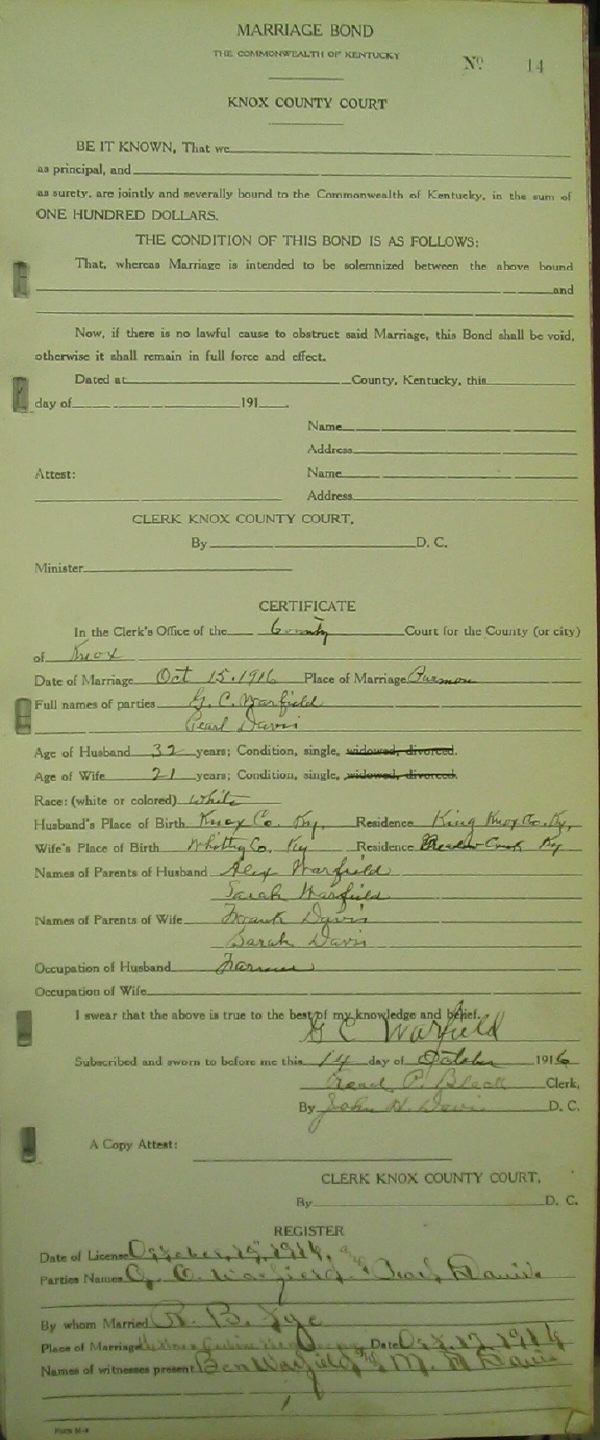 MARRIAGE BOND
THE COMMONWEALTH OF KENTUCKY
No. 14
KNOX COUNTY COURT
BE IT KNOWN, That we
as principal, and
as surety, are jointly and severally bound to the Commonwealth of Kentucky, in the sum of
ONE HUNDRED DOLLARS.
THE CONDITION OF THIS BOND IS AS FOLLOWS:
That, whereas Marriage is intended to be solemnized between the above bound
and
Now, if there is no lawful cause to obstruct said Marriage, this Bond shall be void,
otherwise it shall remain in full force and effect.
Dated at County, Kentucky, this
day of 191 .
Name
Address
Attest: Name
Address
CLERK KNOX COUNTY COURT.
By D. C.
Minister
CERTIFICATE
In the Clerk's Office of the County Court for the County (or city)
of Knox
Date of Marriage Oct 15. 1916 Place of Marriage
Full names of parties G. C. Warfield
Pearl Davis
Age of Husband 32 years; Condition, single, widowed, divorced.
Age of Wife 21 years; Condition, single, widowed, divorced.
Race: (white or colored) White
Husband's Place of Birth Knox Co. Ky, Residence King Knox Co. Ky,
Wife's Place of Birth Whitley Co. Ky Residence Ky
Names of Parents of Husband Alex Warfield
Sarah Warfield
Names of Parents of Wife Frank Davis
Sarah Davis
Occupation of Husband Farmer
Occupation of Wife
I swear that the above is true to the best of my knowledge and belief.
G C Warfield
Subscribed and sworn to before me this 14 day of October 1916
Read P. Black Clerk,
By John H. Davis D. C.
A Copy Attest:
CLERK KNOX COUNTY COURT.
By D. C.
REGISTER
Date of License October 1916,
Parties Names G. C. Warfield & Pearl Davis
By whom Married R. B.
Place of Marriage Date Oct. 1916
Names of witnesses present Ben Warfield M. Davis